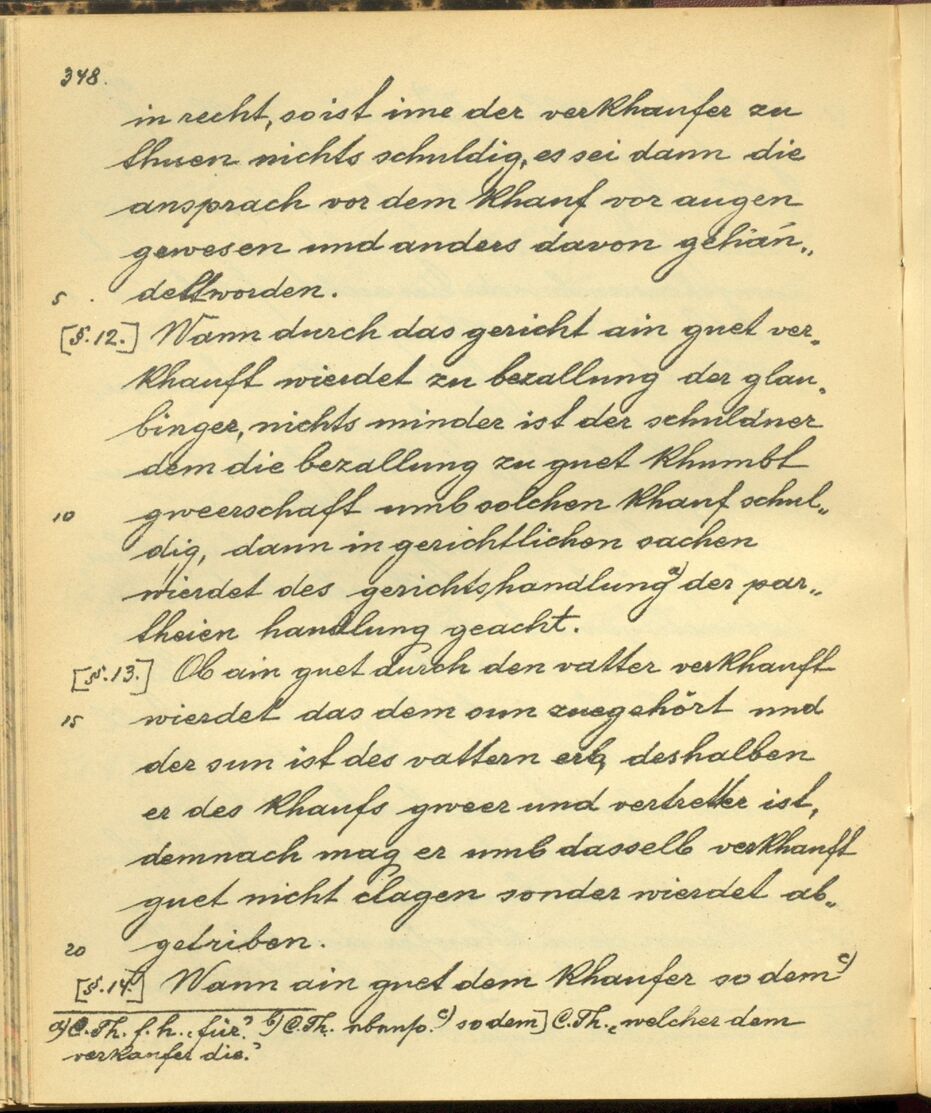 348.
in recht, so ist ime der verkhaufer zu
thuen nichts schuldig, es sei dann die
ansprach vor dem khauf vor augen
gewesen und anders davon gehan„
5 delt worden.
[§.12.] Wann durch das gericht ain guet ver„
khauft wierdet zu bezallung der glau„
binger, nichts minder ist der schuldner
dem die bezallung zu guet khumbt
10 gweerschaft umb solchen khauf schul„
dig, dann in gerichtlichen sachen
wierdet des gerichtshandlung a) der par„
theien handlung geacht.
[§.13.] Ob ain guet durch den vatter verkhauft
15 wierdet das dem sun zuegehört und
der sun ist des vattern erb, deshalben
er des khaufs gweer und vertretter ist,
demnach mag er umb dasselb verkhauft
guet nicht clagen sonder wierdet ab„
20 getriben.
[§.14.] Wann ain guet dem khaufer so dem c)
a) C. Th. f. h. „für“ b) C. Th. c) so dem] C. Th. „welcher dem
verkaufer die.“